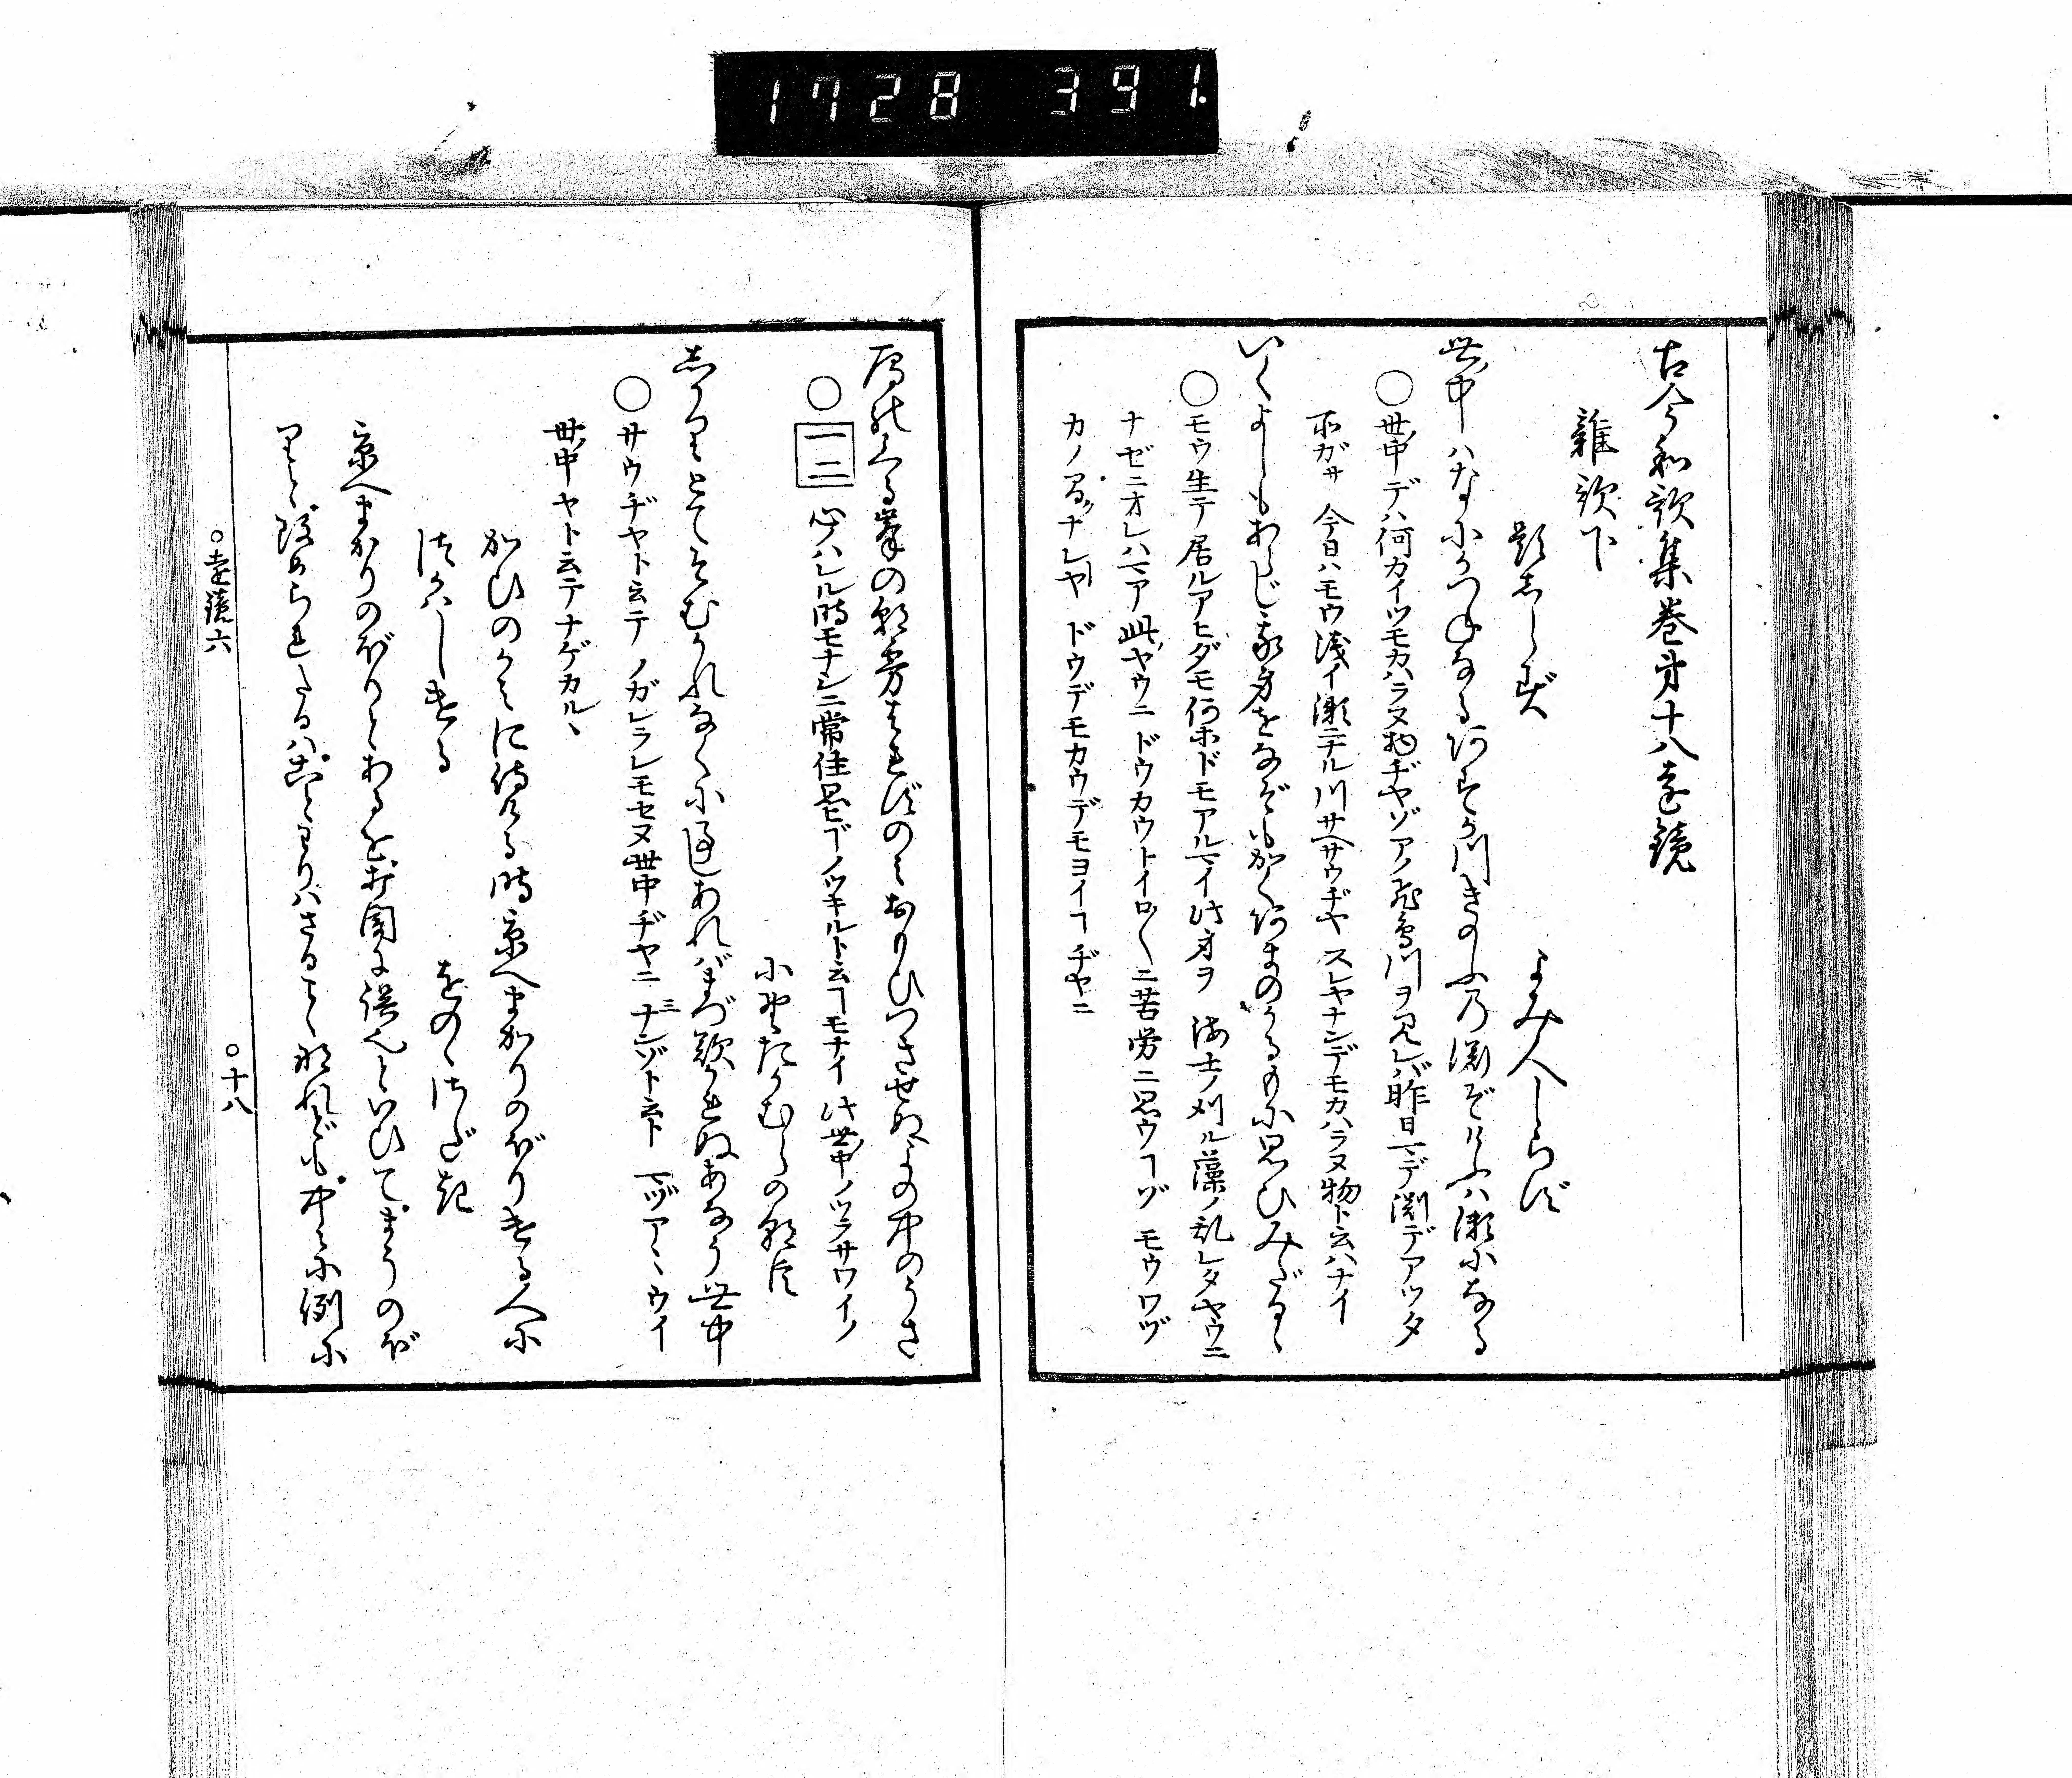 1728 391.
古今和歌集巻第十八遠鏡
雑歌下
題しらず
よみ人しらず
世中ハなにかつねなるあすか川きのふの淵ぞけふハ瀬になる
○世ノ中デハ何カイツモカハラヌ物ヂヤゾアノ飛鳥川ヲ見レバ昨日マデ淵デアツタ
所ガサ今日ハモウ浅イ瀬ニナル川サヘサウヂヤスレヤナンデモカハラヌ物ト云ハナイ
いくよしもあらじ我身をなぞもかくあまのかるもに思ひみだるゝ
○モウ生テ居ルアヒダモ何ホドモアルマイ此身ヲ海士ノ刈ル藻ノ乱レタヤウニ
ナゼニオレハマア此ヤウニドウカウトイロ〱ニ苦労ニ思ウヿゾモウワヅ
カノナレヤドウデモカウデモヨイヿヂヤニ
鴈のくる峯の朝霧はれずのみおもひつきせぬよの中のうさ
○一二心ノハレル時モナシニ常住思ヒノツキルト云ヿモナイ此世ノ中ノツラサワイノ
小野たかむらの朝臣
しかりとてそむかれなくに事しあれバまづ歎かれぬあなう世中
○サウヂヤト云テノガレラレモセヌ世ノ中ヂヤニナニゾト云トマヅアヽウイ
世ノ中ヤト云テナゲカルヽ
かひのかみに侍ける時京へまかりのぼりける人に
つかハしける
をのゝさだき
京へまかりのぼりとあるを打聞に誤也といひてまうのぼ
りと改められたるハことわりハさることなれどもこゝに例に
○遠鏡六
○十八